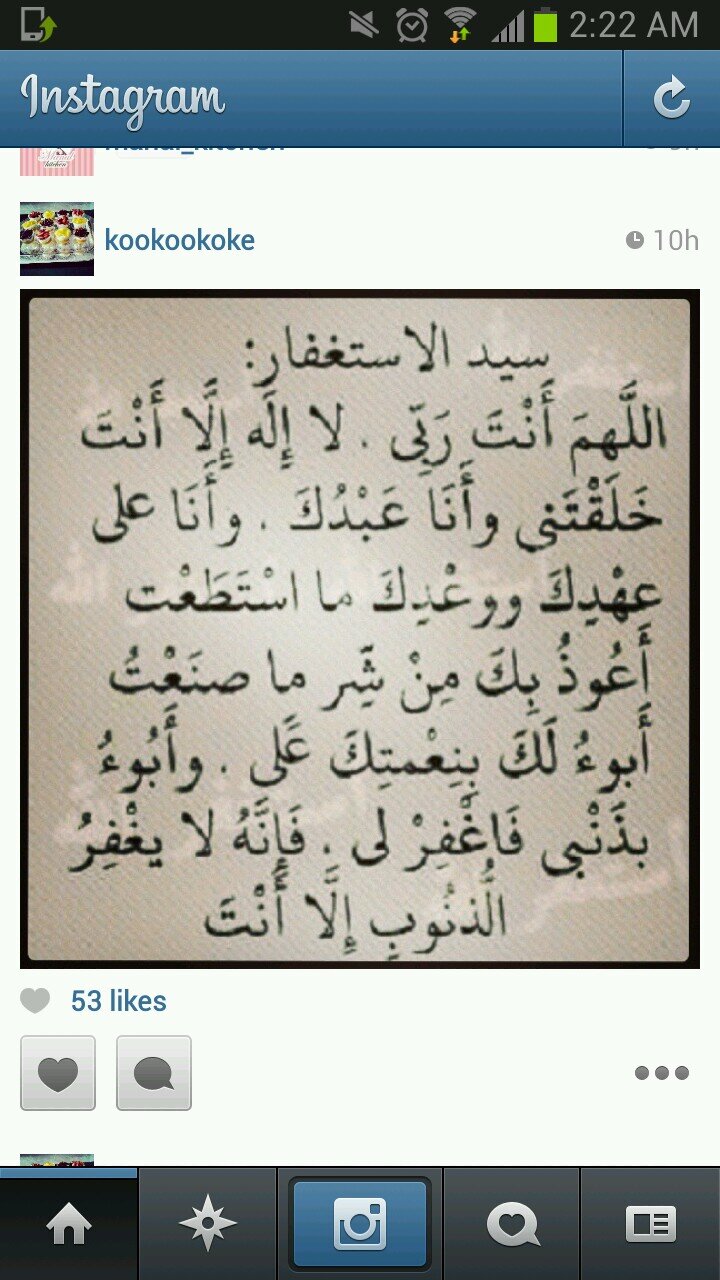 2:22 AM
Instagram
kookookoke
10h
سيد الاستغفار:
اللَّهمَ أَنْتَ رَبِّى . لا إِلَه إِلَّا أَنْتَ
خَلَقْتَنى وأَنَا عَبْدُكَ . وأَنَا على
عهْدِكَ ووعْدِكَ ما اسْتَطَعْت
أَعُوذُ بِكَ مِنْ شَّرِ ما صنَعْتُ
أَبوءُ لَكَ بِنِعْمتِكَ عَلَى . وأَبُوءُ
بذَنْبى فَاغْفِرْ لى . فَإِنَّهُ لا يغْفِرُ
الذُّنُوبِ إِلَّا أَنْتَ
53 likes